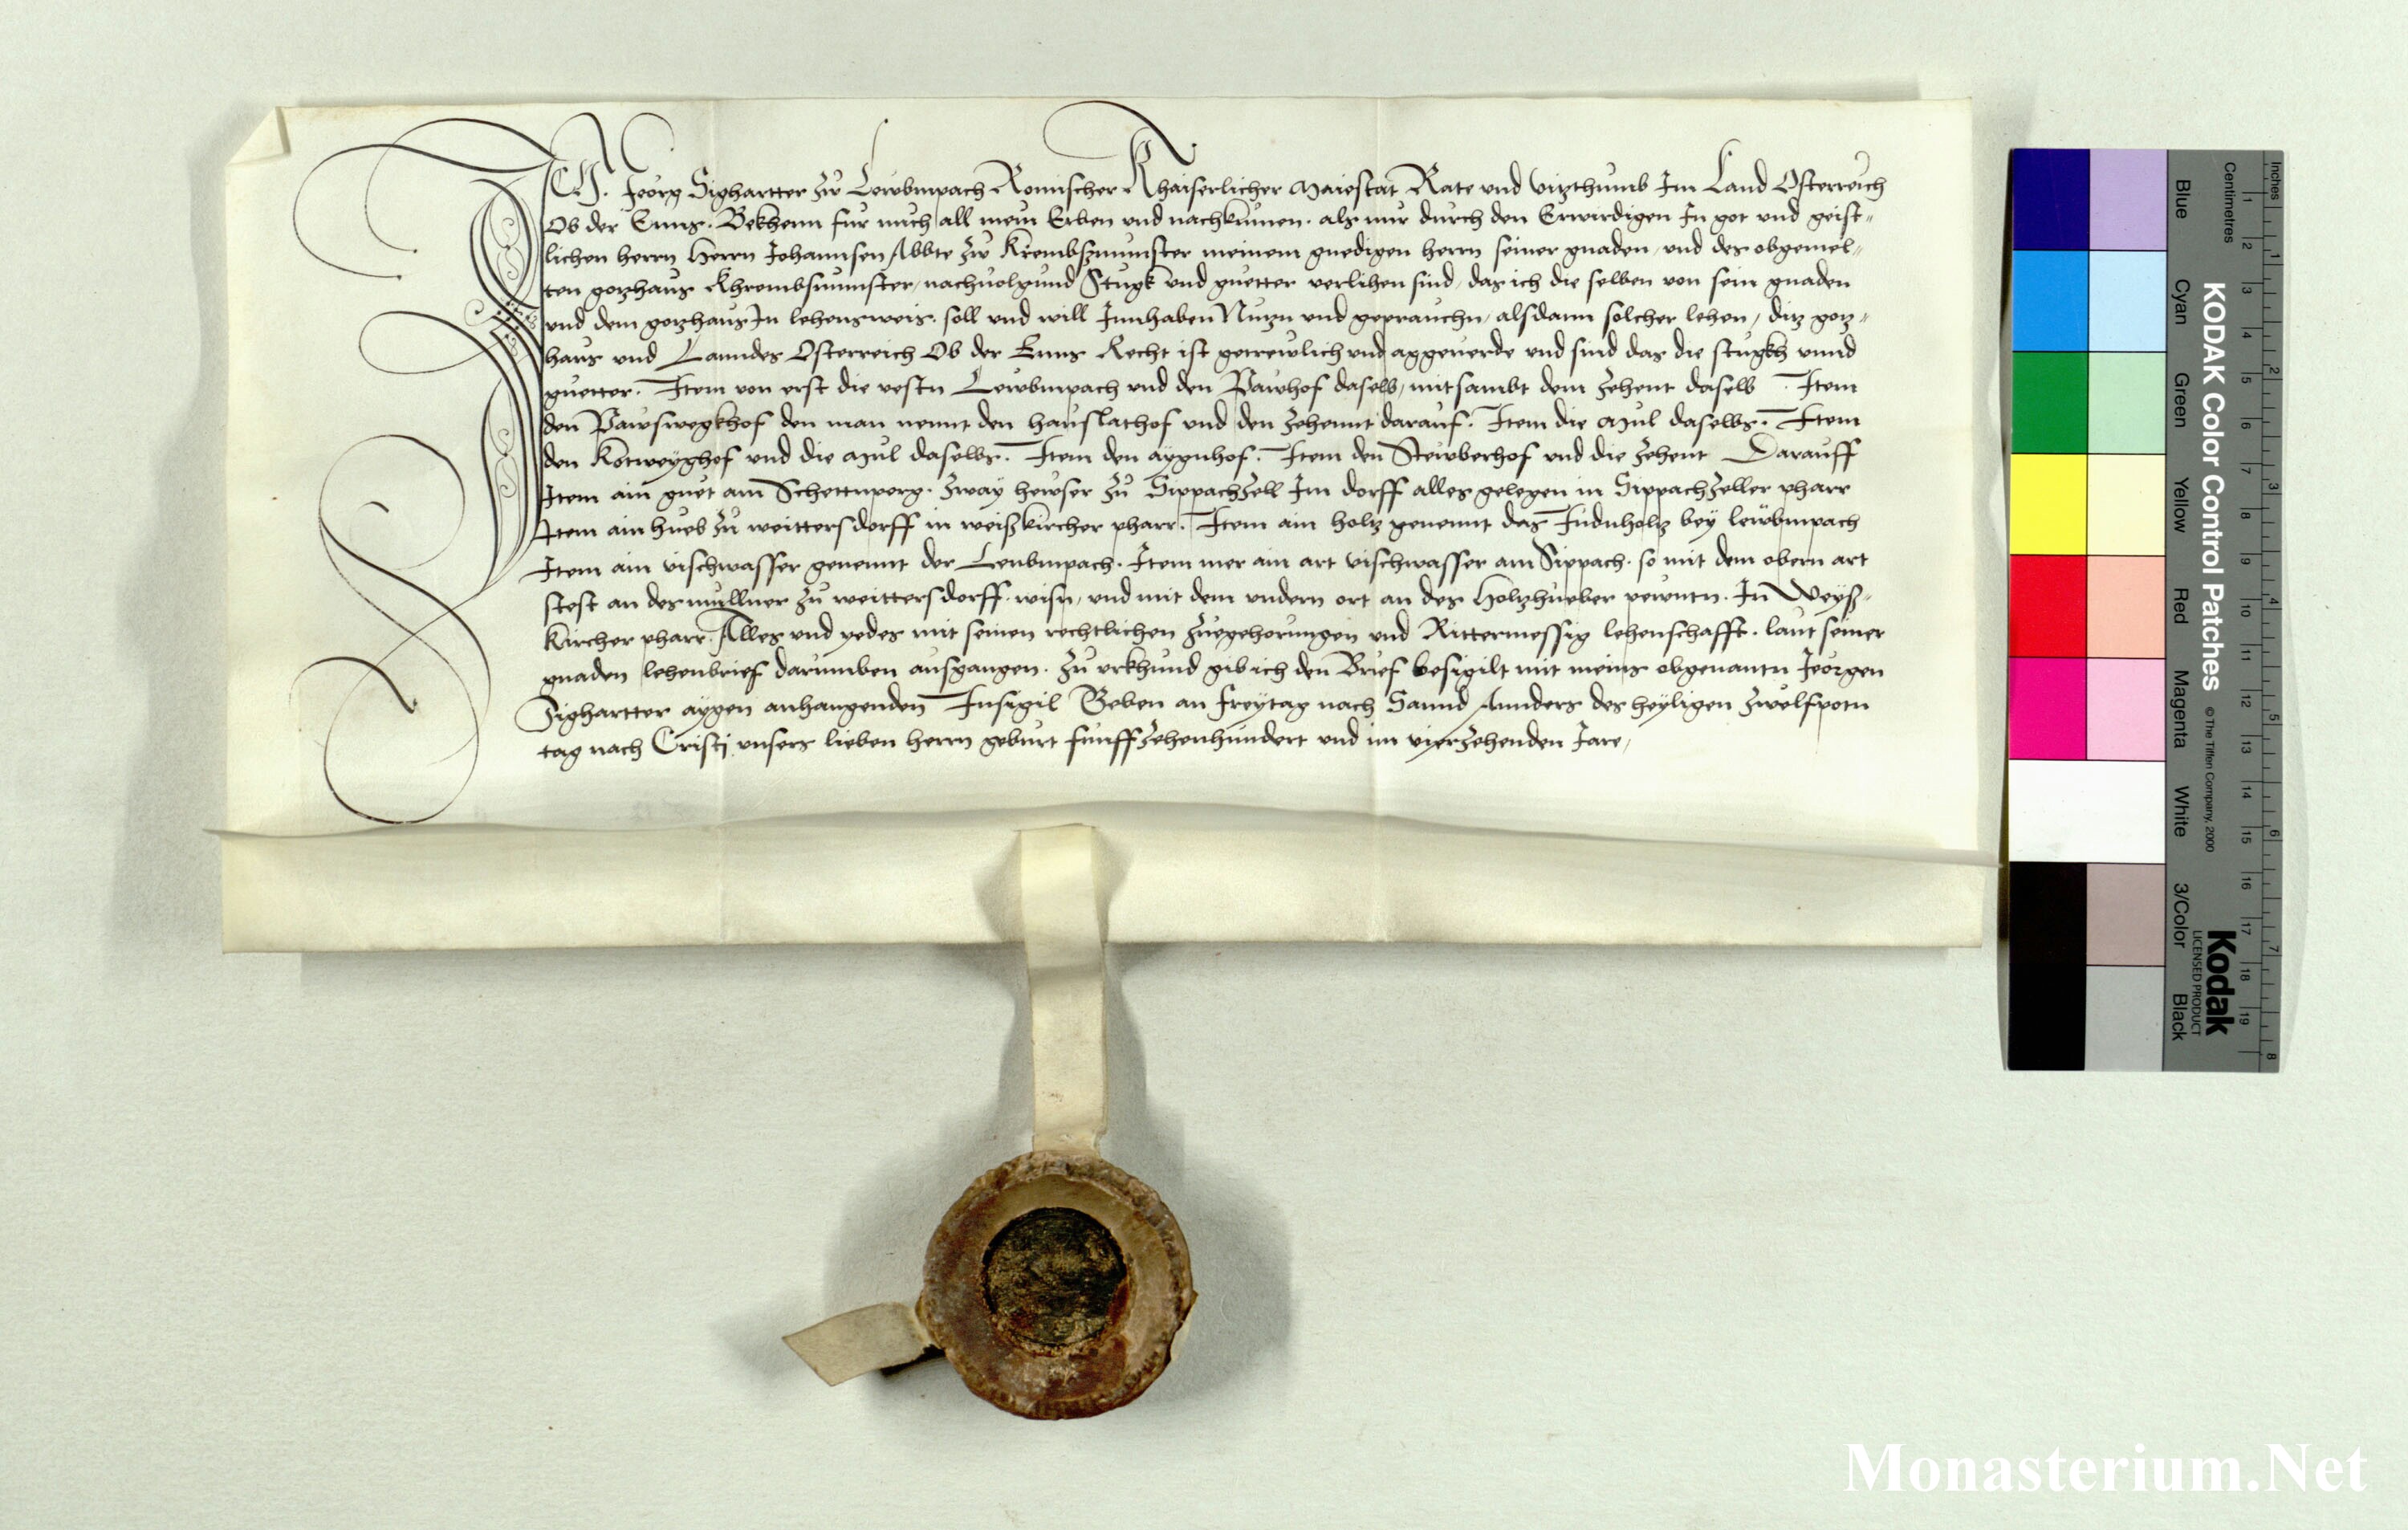 ICH. Jeorg Sighartter zw Lewbmpach Romischer Khaiserlicher Maiestat Rate vnd vizthumb Im Land Osterreich
Ob der Enns. Bekhenn fur mich all mein Erben vnd nachkumen. als mir durch den Erwirdigen In got vnd geist-
lichen herrn Herrn Johannsen Abbte zw Krembsmunster meinem gnedigen herrn seiner gnaden, vnd des obgemel-
ten gotzhaus Khrembsmunster, nachuolgund Stugk vnd guetter verlihen sind, das ich die selben von sein gnaden
vnd dem gotzhaus In lehensweis. soll vnd will Innhaben Nutzn vnd geprauchn, alsdann solcher lehen, ditz gotz-
haus vnd Lanndes Osterreich Ob der Enns Recht ist getrewlich vnd angeuerde vnd sind das die stugkh vnnd
guetter. Item von erst die vestn Lewbmpach vnd den Pawhof daselb, mitsambt dem zehent daselb. Item
den Pawswegkhof den man nennt den hauslathof vnd den zehennt darauf. Item die Mul daselbs. Item
den Kotweyghof vnd die Mul daselbs. Item den aygnhof. Item den Stewberhof vnd die zehent Darauff
Item ain guet am Schettnperg. zway hewser zu Sippachzell Im dorff alles gelegen in Sippachzeller pharr
Item ain hueb zu weittersdorff in weiszkircher pharr. Item ain holtz genennt das Judnholtz bey lewbmpach
Item ain vischwasser genennt der Leubmpach. Item mer ain art vischwasser am Sippach. so mit dem obern art
stest an des mullner zu weittersdorff. wisn, vnd mit dem vndern ort an des Holtzhueber pewntn. In Weysz-
kircher pharr. Alles vnd yedes mit seinen rechtlichen zuegehorungen vnd Rittermessig lehenschafft. laut seiner
gnaden lehenbrief darumben ausgangen. zu vrkhund gib ich den Brief besigilt mit meins obgenantn Jeorgen
Sighartter aygen anhangenden Insigil Geben an freytag nach Sannd Annders des heyligen zwelfpotn
tag nach Cristj vnsers lieben herrn geburt funffzehenhundert vnd im vierzehenden Jare,
KODAK Color Control Patches © The Tiffen Company, 2000
Kodak
LICENSED PRODUCT
Inches
Centimetres
1 2 3 4 5 6 7 8
1 2 3 4 5 6 7 8 9 10 11 12 13 14 15 16 17 18 19
Blue Cyan Green Yellow Red Magenta White 3/Color Black
Monasterium.Net